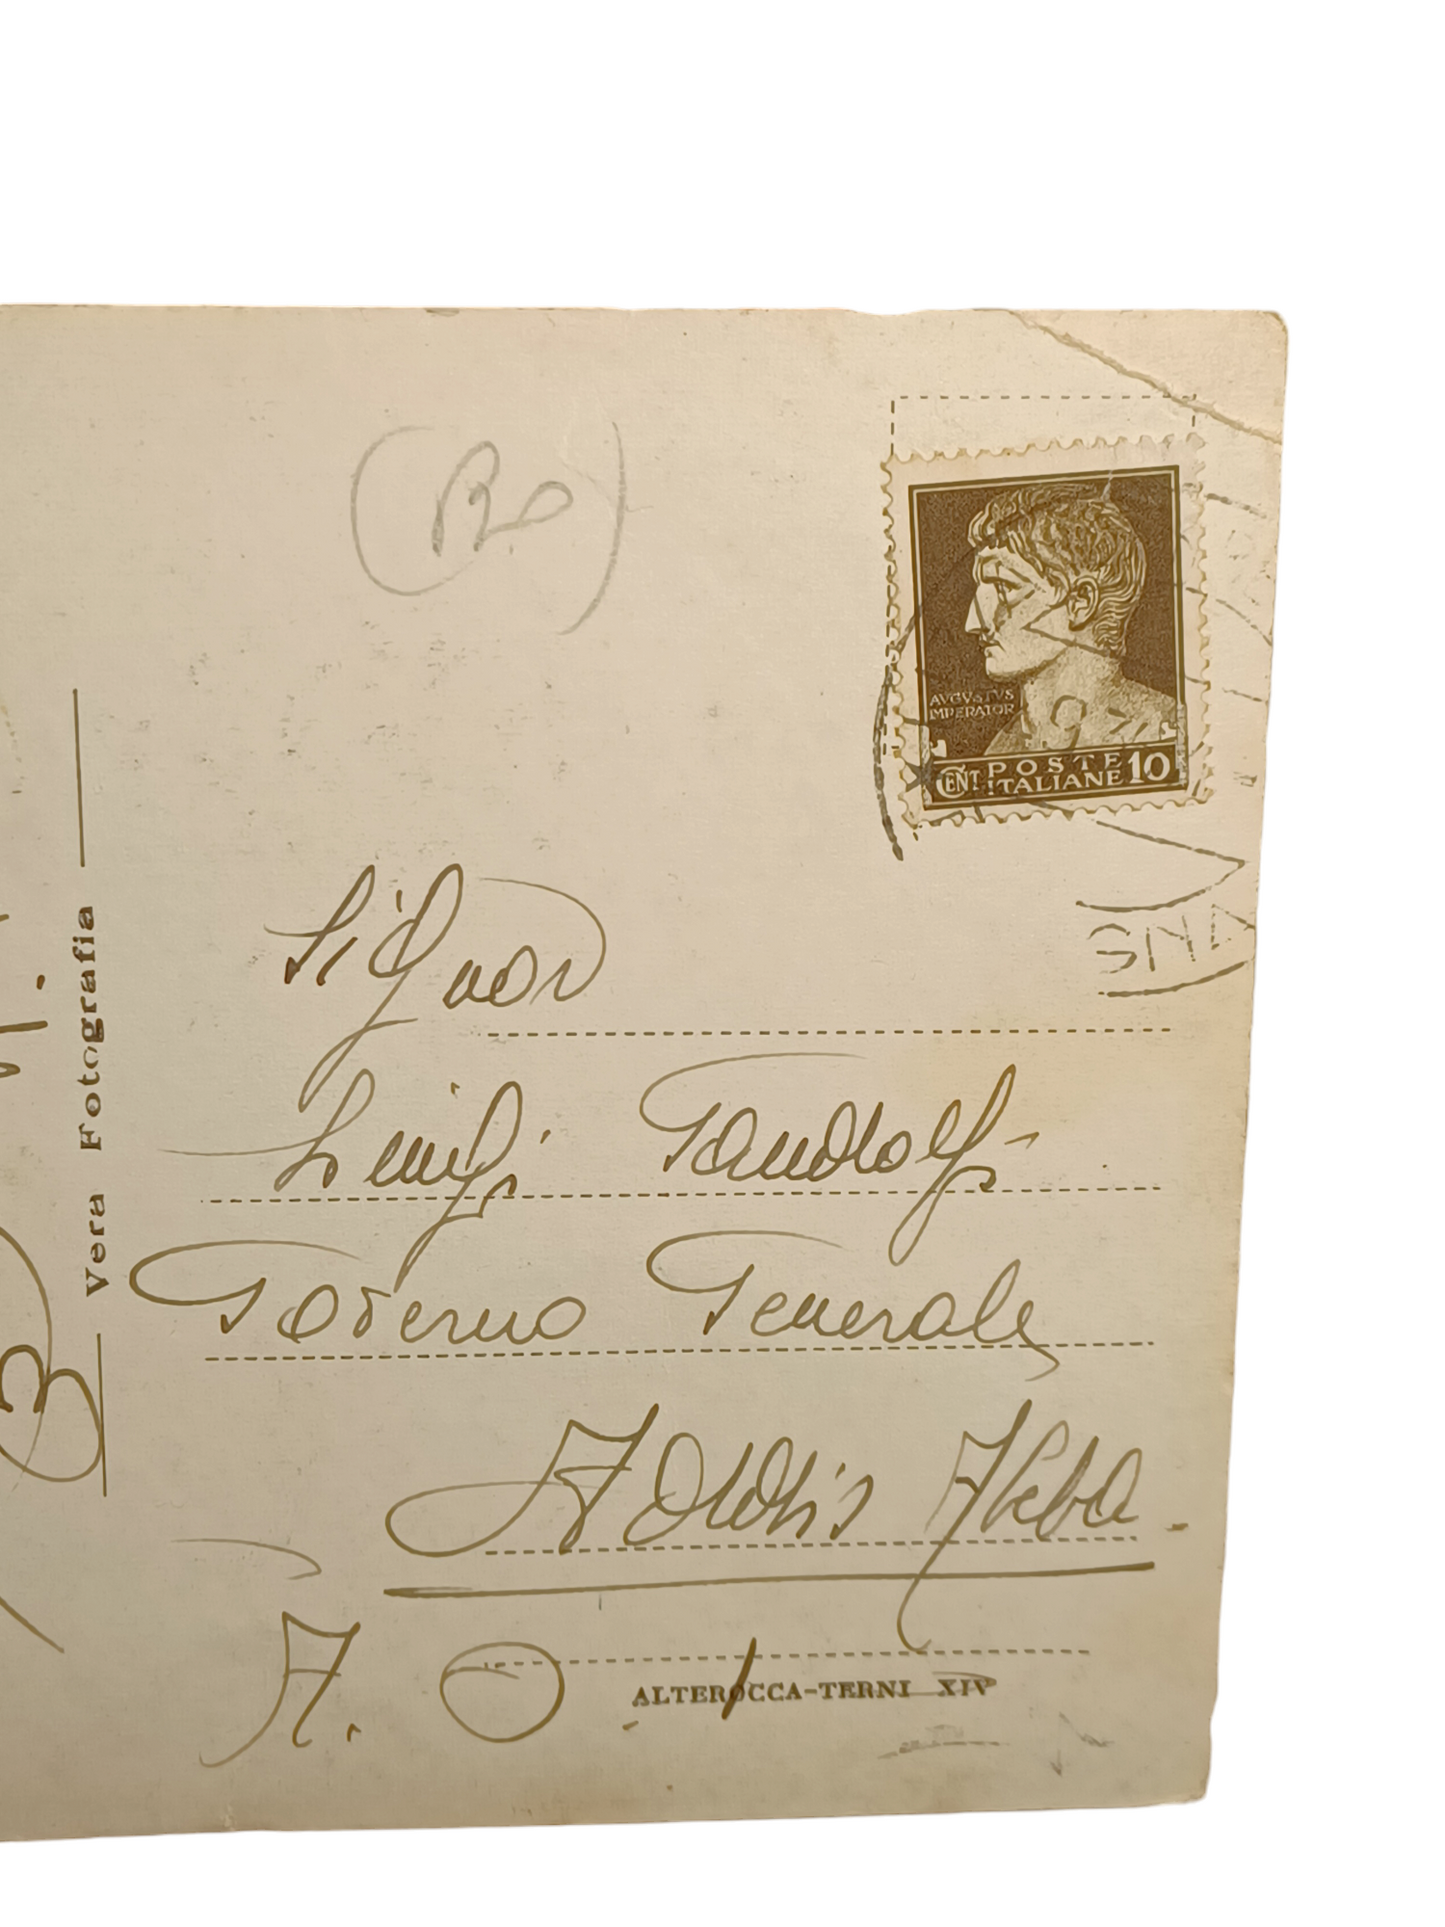 AVGVSTVS
IMPERATOR
CENT. POSTE ITALIANE 10
Signor
Luigi Gandolfi
Governo Generale
Addis Abeba.
A. O.
Vera Fotografia
ALTEROCCA-TERNI XIV